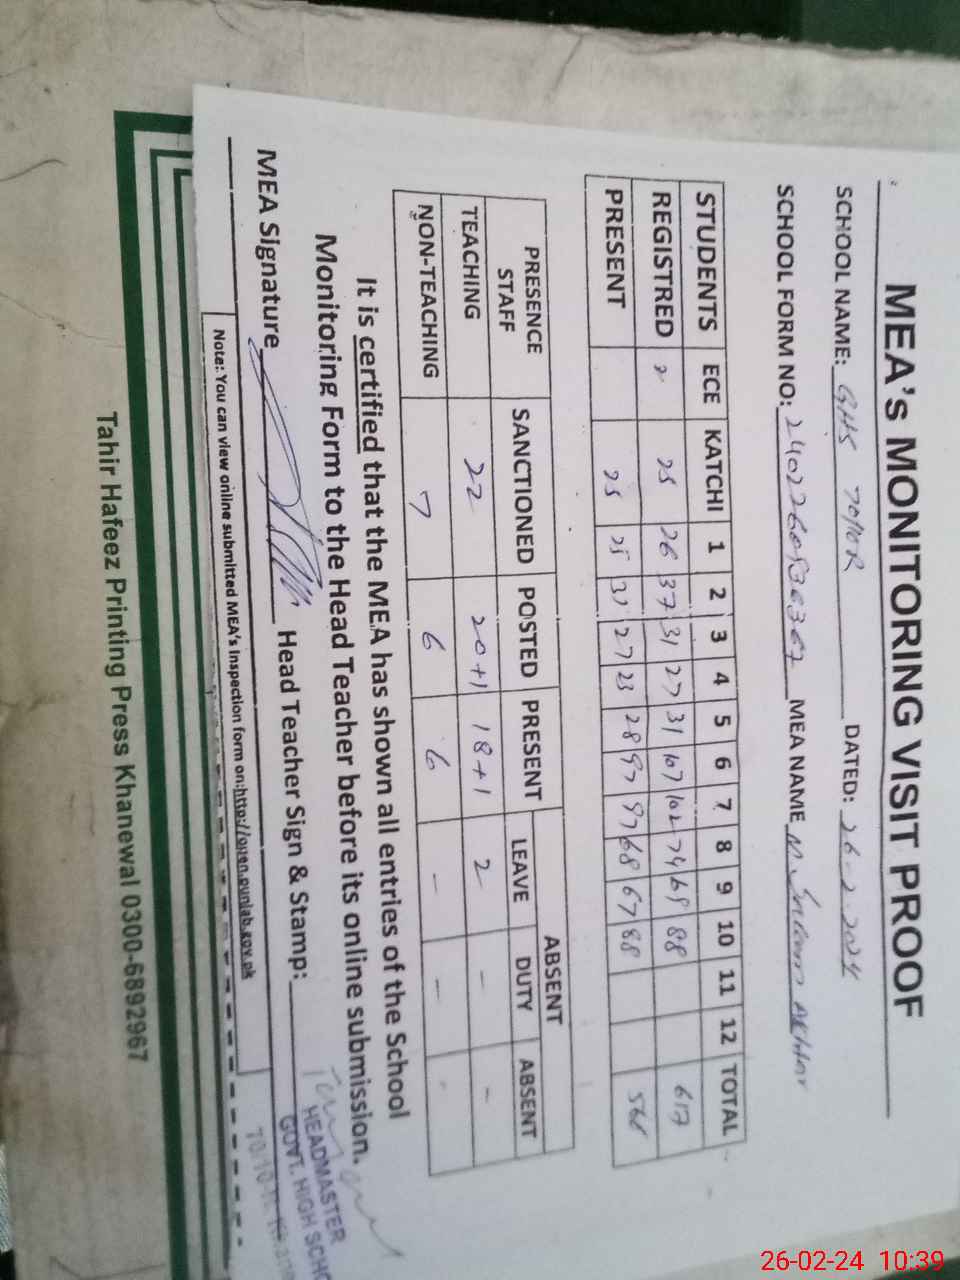 MEA's MONITORING VISIT PROOF
SCHOOL NAME: GHS 70/10R DATED: 26-2-2024
SCHOOL FORM NO: MEA NAME M. Akhtar
STUDENTS ECE KATCHI 1 2 3 4 5 6 7 8 9 10 11 12 TOTAL
REGISTRED 2 25 26 37 31 27 31 107 102 74 69 88 617
PRESENT 25 25 31 27 23 28 97 97 68 67 88
PRESENCE STAFF SANCTIONED POSTED PRESENT ABSENT
LEAVE DUTY ABSENT
TEACHING 22 20+1 18+1 2 - -
NON-TEACHING 7 6 6 - - -
It is certified that the MEA has shown all entries of the School
Monitoring Form to the Head Teacher before its online submission.
MEA Signature Head Teacher Sign & Stamp:
HEADMASTER
GOVT. HIGH SCHO
70/10-R
Note: You can view online submitted MEA's Inspection form on:http://open.punjab.gov.pk
Tahir Hafeez Printing Press Khanewal 0300-6892967
26-02-24 10:39